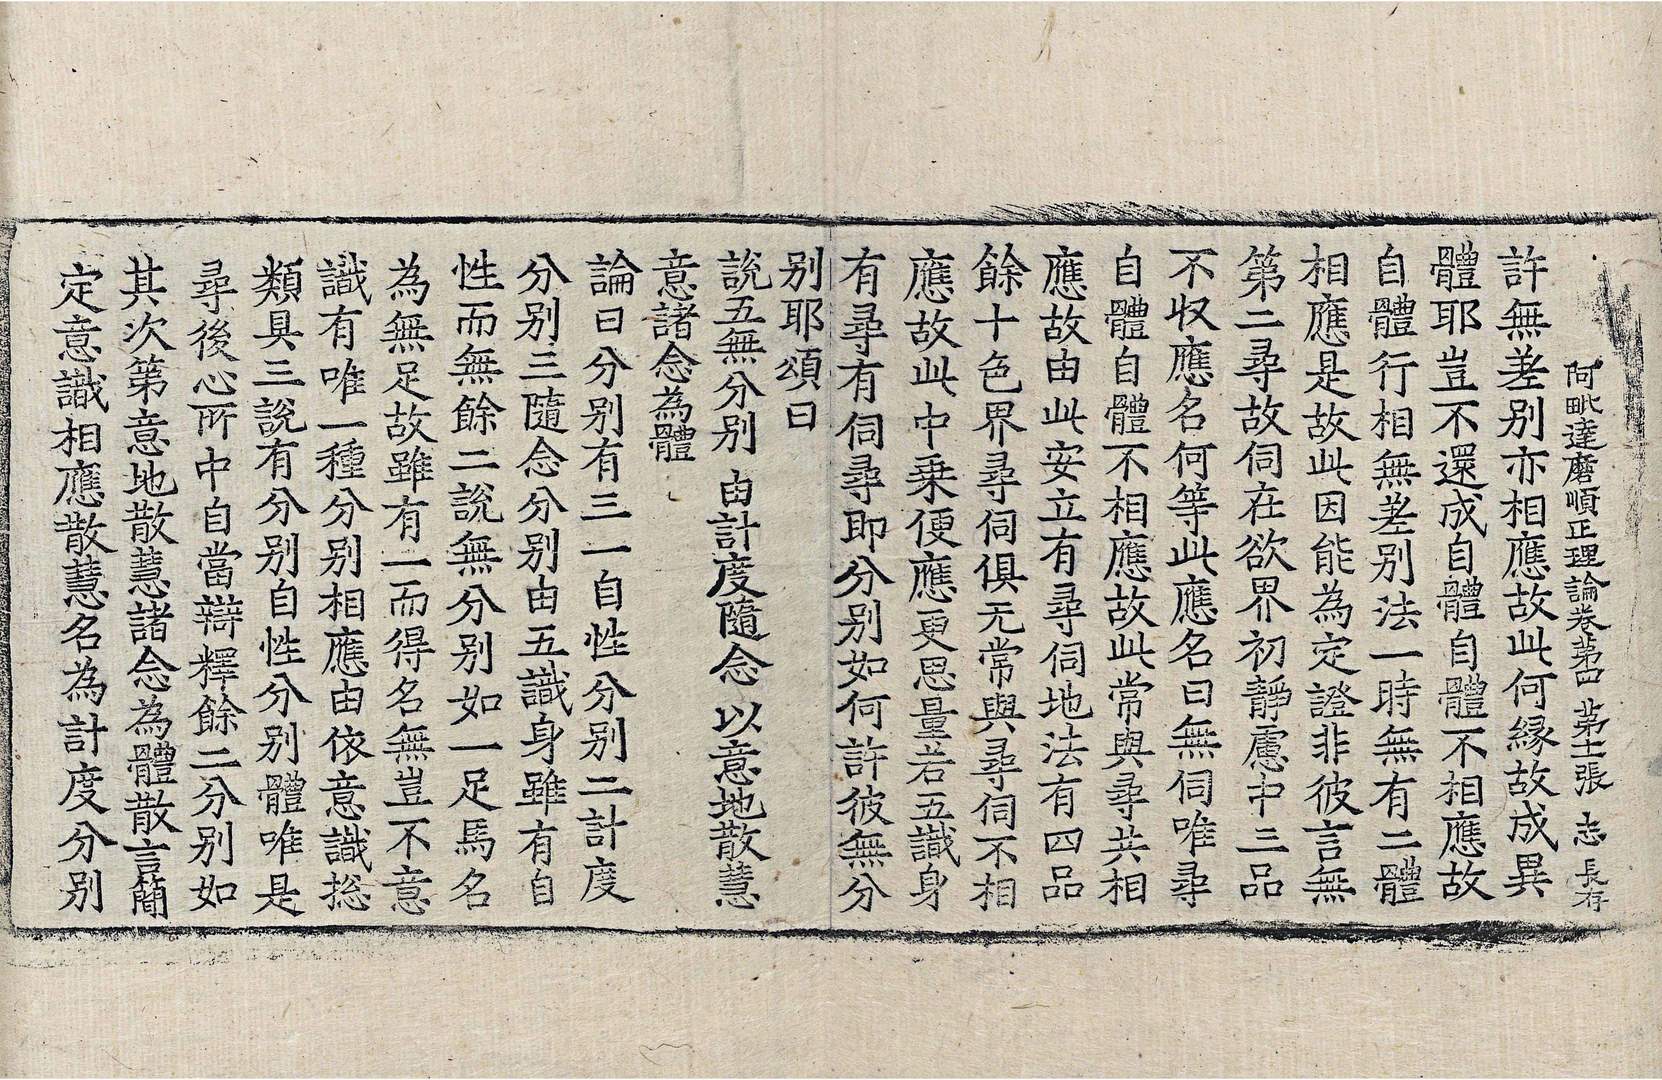 阿毗達磨順正理論卷苐四 苐十二張 志 長存
許無差别亦相應故此何緣故成異
體耶豈不還成自體自體不相應故
自體行相無差别法一時無有二體
相應是故此因能為定證非彼言無
第二尋故伺在欲界初靜慮中三品
不收應名何等此應名曰無伺唯尋
自體自體不相應故此常與尋共相
應故由此安立有尋伺地法有四品
餘十色界尋伺俱无常與尋伺不相
應故此中乗便應更思量若五識身
有尋有伺尋即分别如何許彼無分
别耶頌曰
說五無分别 由計度隨念 以意地散慧
意諸念為體
論曰分别有三一自性分别二計度
分别三隨念分别由五識身雖有自
性而無餘二說無分别如一足馬名
為無足故雖有一而得名無豈不意
識有唯一種分别相應由依意識揔
類具三說有分别自性分别體唯是
尋後心所中自當辯釋餘二分别如
其次第意地散慧諸念為體散言簡
定意識相應散慧名為計度分别